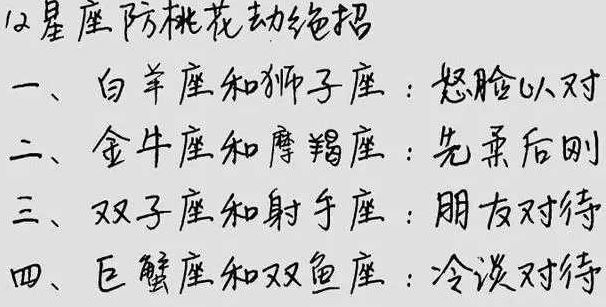 12星座防桃花劫绝招
一、白羊座和狮子座：怒脸以对
二、金牛座和摩羯座：先柔后刚
三、双子座和射手座：朋友对待
四、巨蟹座和双鱼座：冷淡对待